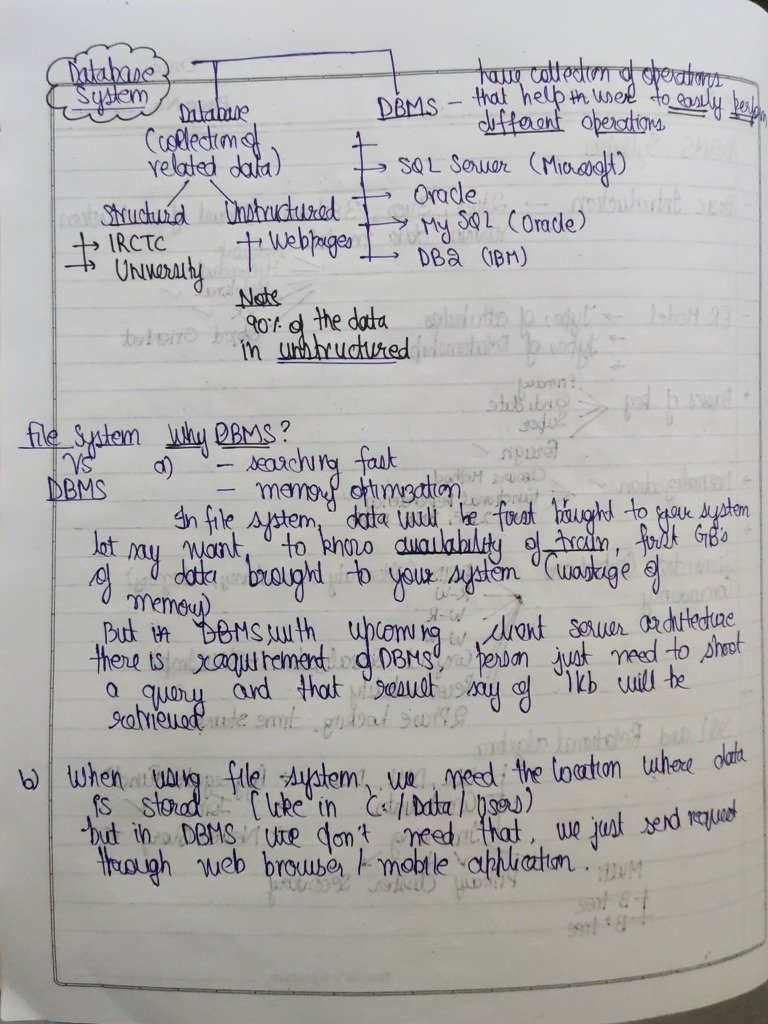 Database
System
Database
(collection of
related data)
Structured
IRCTC
University
Unstructured
Webpages
Note
90% of the data
in unstructured
DBMS - have collection of operations
that help in user to easily perform
different operations
SQL Server (Microsoft)
Oracle
My SQL (Oracle)
DB2 (IBM)
File System Why DBMS?
Vs a) - searching fast
DBMS - memory optimization
In file system, data will be first bought to your system
let say want to know availability of train, first GB's
of data brought to your system (wastage of
memory)
But in DBMS with upcoming client server architecture
there is requirement of DBMS, person just need to shoot
a query and that result say of 1kb will be
retrieved
b) When using file system, we need the location where data
is stored. (like in C:/Data/Users)
but in DBMS we don't need that, we just send request
through web browser / mobile application.